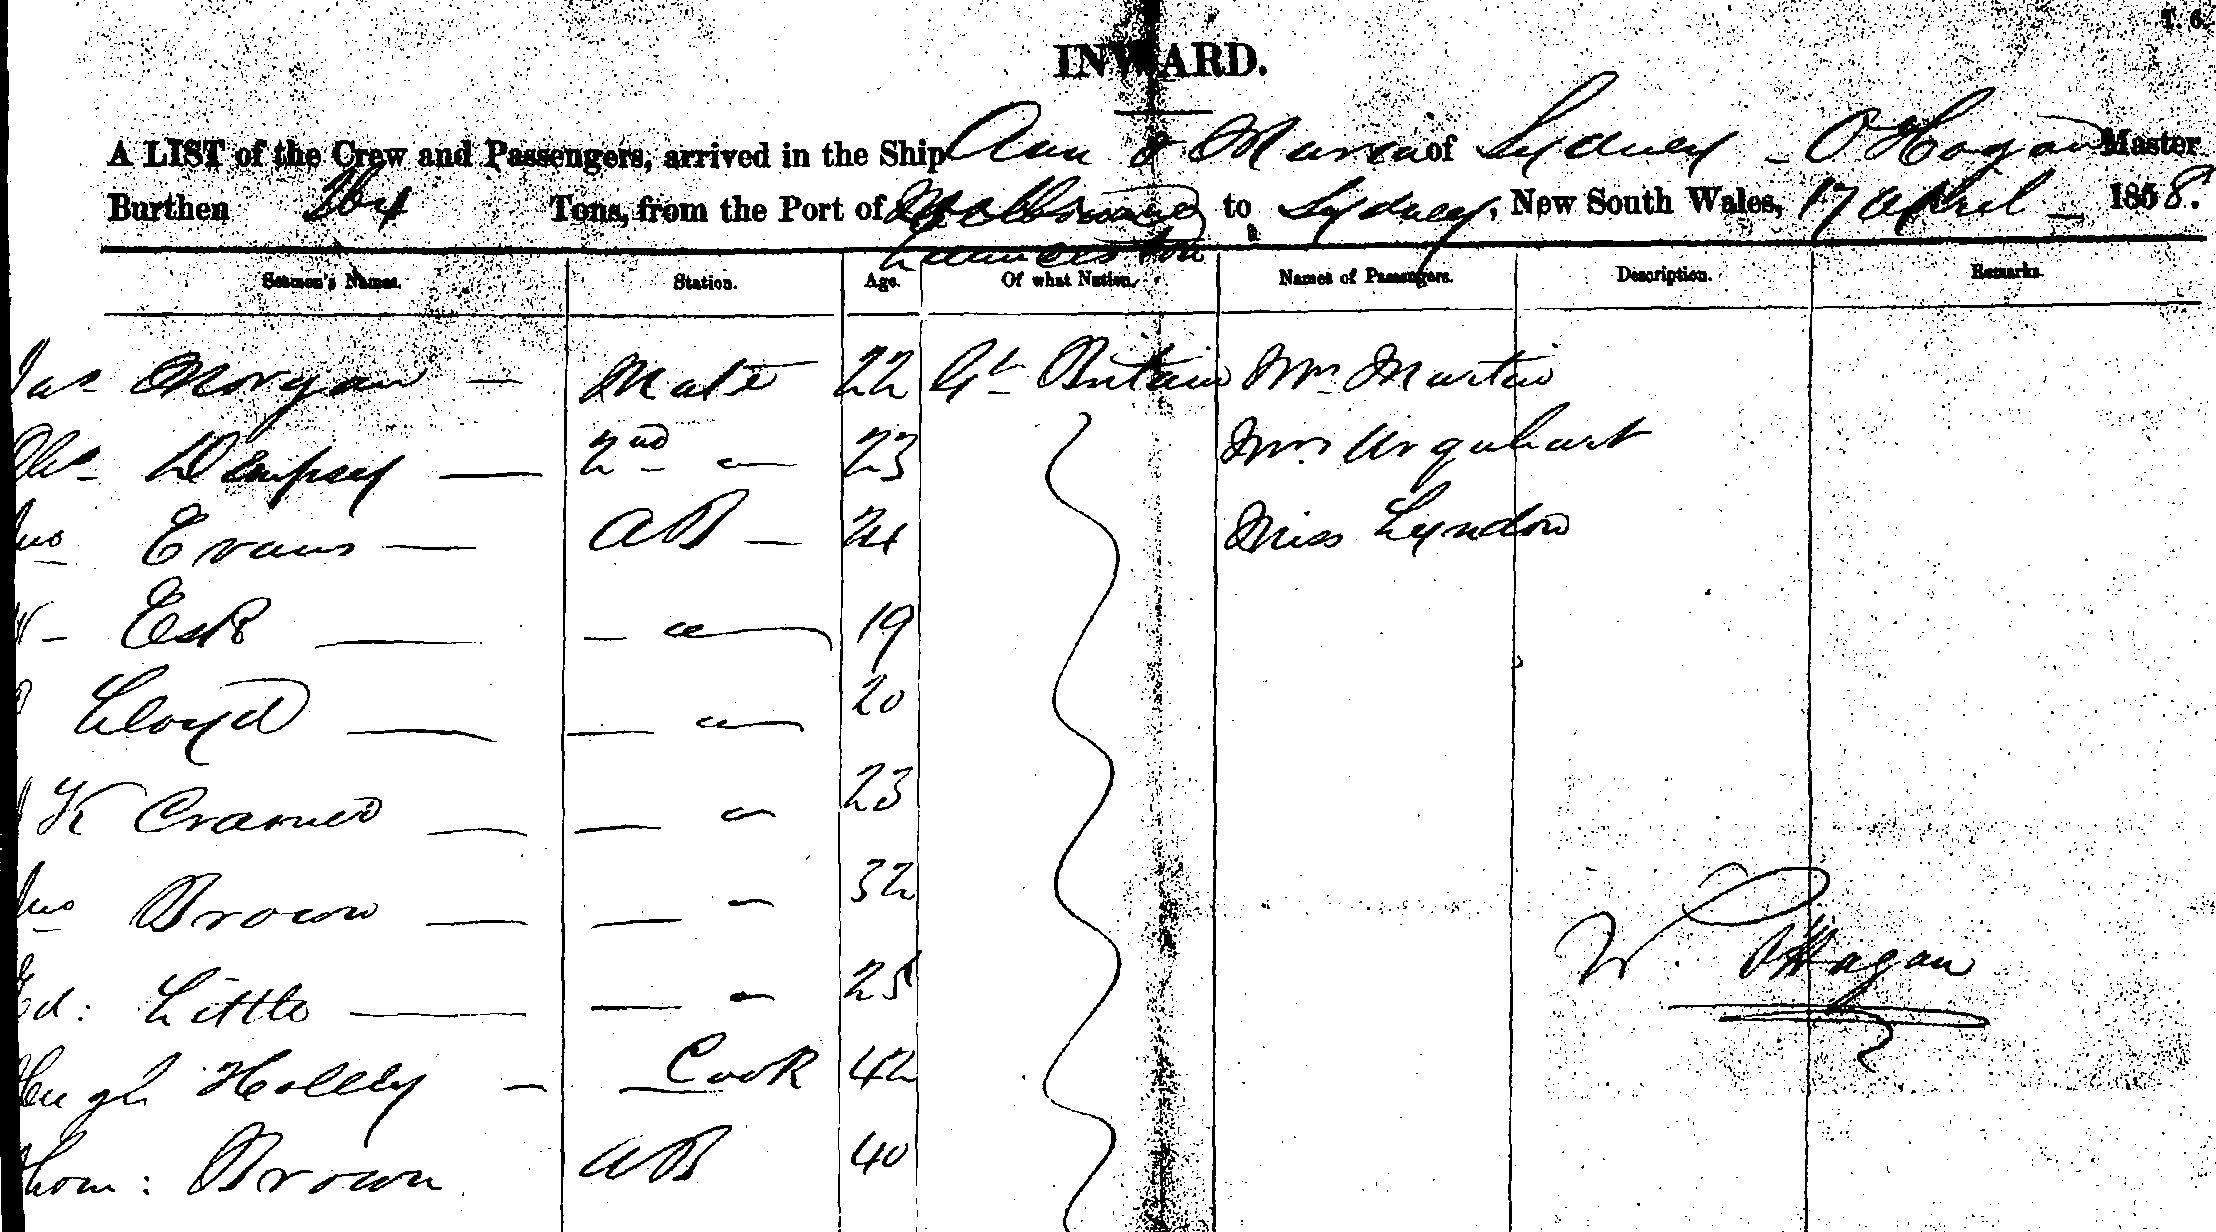 T. 6.
INWARD.
A LIST of the Crew and Passengers, arrived in the Ship Ann & Maria of Sydney - O'Hagan Master
Burthen 264 Tons, from the Port of Melbourne to Sydney, New South Wales, 17 April 1858.
Launceston
Seamen's Names. Station. Age. Of what Nation. Names of Passengers. Description. Remarks.
Jas Morgan — Mate 22 Gt Britain Mrs Martin
Dempsey — 2nd — 23 Mrs Urquhart
Jno Evans — AB — 24 Miss Lyndon
Esk — — 19
Lloyd — — 20
K Cramer — — 23
Jno Brown — — 32
W. O'Hagan
Ed: Little — — 25
Hugh Holley — Cook 42
Thom: Brown AB 40